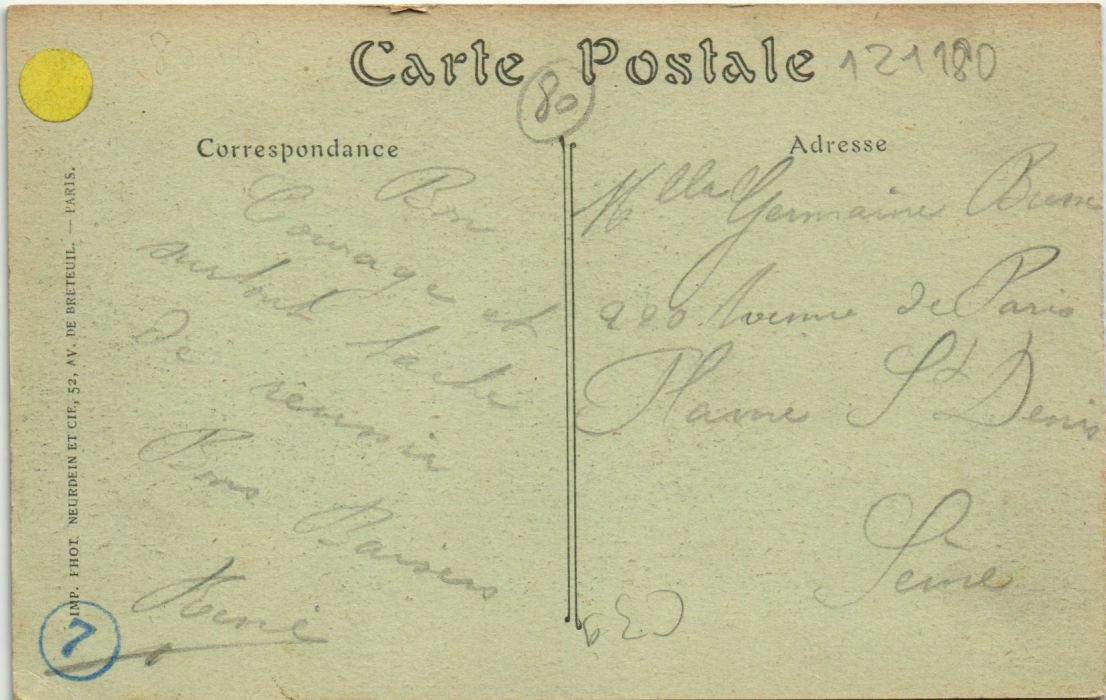 Carte Postale
121180
80
Correspondance
Adresse
IMP. PHOT. NEURDEIN ET CIE, 52, AV. DE BRETEUIL. — PARIS.
Bon
Courage et
surtout tache
De réussir
Bons Baisers
René
7
Mlle Germaine
220 Avenue de Paris
Plaine St Denis
Seine